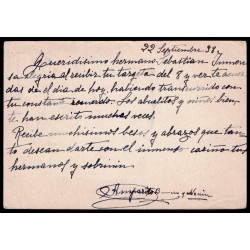 22 Septiembre 38
Queridisimo hermano Sebastian: Inmensa
alegria al recibir tu targeta del 8 y ver te acuer
das de el dia de hoy, habiendo transcurrido con
tu constante recuerdo. Los abuelitos y niños bien,
te han escrito muchas veces.
Recibe muchisimos besos y abrazos que tan
to desean darte con el inmenso cariño tus
hermanos y sobrinin
Amparito